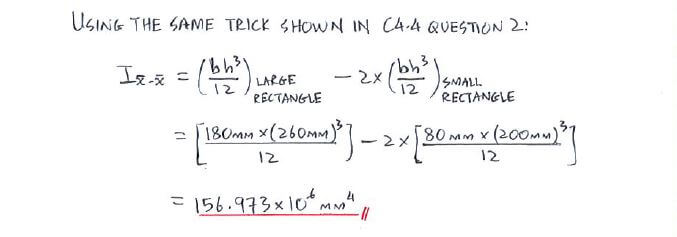 USING THE SAME TRICK SHOWN IN C4.4 QUESTION 2:
I x̄-x̄ = (bh³/12) LARGE RECTANGLE - 2x (bh³/12) SMALL RECTANGLE
= [180MM x (260MM)³/12] - 2x [80MM x (200MM)³/12]
= 156.973 x 10⁶ MM⁴